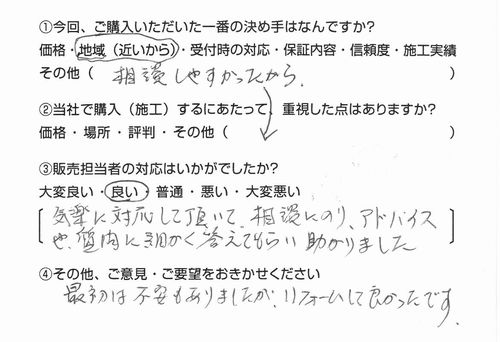 ①今回、ご購入いただいた一番の決め手はなんですか?
価格・地域（近いから）・受付時の対応・保証内容・信頼度・施工実績
その他（ 相談しやすかったから. ）
②当社で購入（施工）するにあたって、重視した点はありますか?
価格・場所・評判・その他（ ）
③販売担当者の対応はいかがでしたか?
大変良い・良い・普通・悪い・大変悪い
気楽に対応して頂いて、相談にのり、アドバイス
や、質問に細かく答えてもらい助かりました
④その他、ご意見・ご要望をおきかせください
最初は不安もありましたが、リフォームして良かったです.